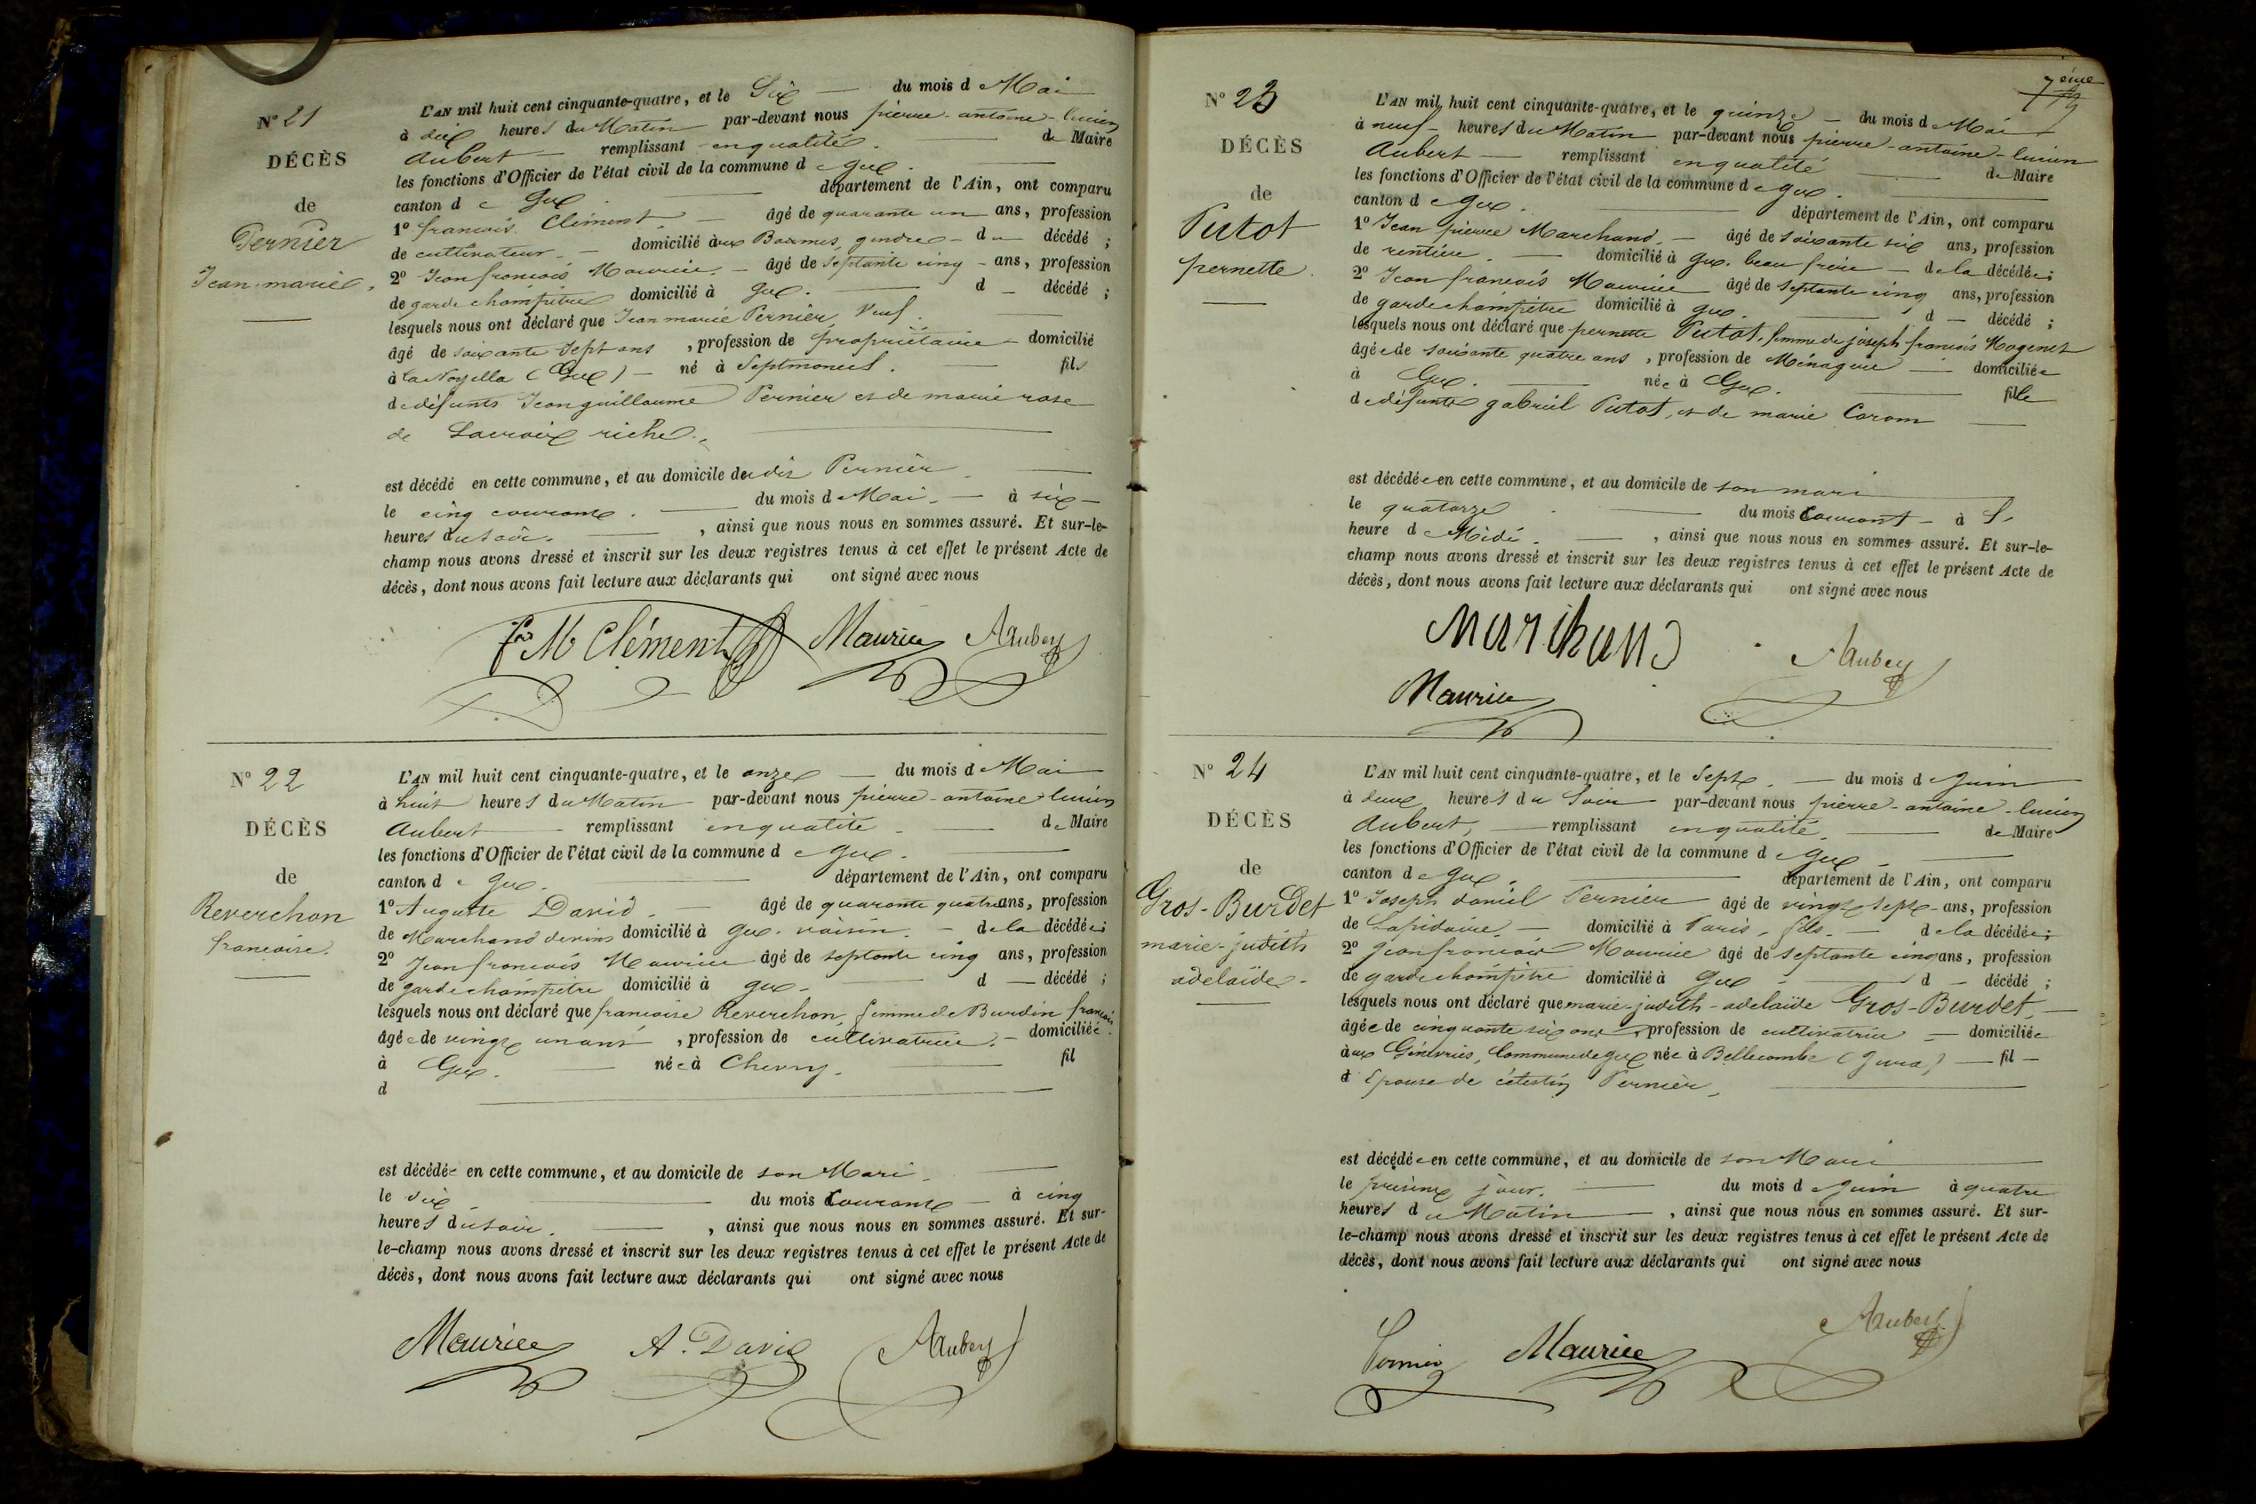 N° 21
DÉCÈS
de
Pernier
Jean-marie.
L'AN mil huit cent cinquante-quatre, et le Six du mois de Mai
à dix heures du Matin par-devant nous pierre-antoine-lucien
Aubert remplissant en qualité de Maire
les fonctions d'Officier de l'état civil de la commune de Gex.
canton de Gex. département de l'Ain, ont comparu
1° francois Clément. âgé de quarante un ans, profession
de cultivateur. domicilié aux Baumes, gendre du décédé ;
2° Jean francois Maurice. âgé de septante cinq ans, profession
de garde champêtre domicilié à Gex. d décédé ;
lesquels nous ont déclaré que Jean marie Pernier, Veuf.
âgé de soixante sept ans, profession de propriétaire domicilié
à la Noyella (Gex) né à Septmoncel. fils
de défunts Jean guillaume Pernier et de marie rose
de Lacroix riche.
est décédé en cette commune, et au domicile du dit Pernier
le cinq courant. du mois de Mai. à six
heures du soir. , ainsi que nous nous en sommes assuré. Et sur-le-
champ nous avons dressé et inscrit sur les deux registres tenus à cet effet le présent Acte de
décès, dont nous avons fait lecture aux déclarants qui ont signé avec nous
Clément Maurice Aubert
N° 22
DÉCÈS
de
Reverchon
francoise.
L'AN mil huit cent cinquante-quatre, et le onze du mois de Mai
à huit heures du Matin par-devant nous pierre-antoine-lucien
Aubert remplissant en qualité de Maire
les fonctions d'Officier de l'état civil de la commune de Gex.
canton de Gex. département de l'Ain, ont comparu
1° Auguste David. âgé de quarante quatre ans, profession
de Marchand de vins domicilié à Gex. voisin. de la décédée ;
2° Jean francois Maurice âgé de septante cinq ans, profession
de garde champetre domicilié à Gex. d décédé ;
lesquels nous ont déclaré que francoise Reverchon, femme de Burdin francois
âgée de vingt un ans, profession de cultivatrice. domiciliée
à Gex. née à Chevry. fil
d
est décédée en cette commune, et au domicile de son Mari.
le dix du mois Courant à cinq
heures du soir. , ainsi que nous nous en sommes assuré. Et sur-
le-champ nous avons dressé et inscrit sur les deux registres tenus à cet effet le présent Acte de
décès, dont nous avons fait lecture aux déclarants qui ont signé avec nous
Maurice A. David Aubert
7ème
N° 23
DÉCÈS
de
Putot
pernette.
L'AN mil huit cent cinquante-quatre, et le quinze du mois de Mai
à neuf heures du Matin par-devant nous pierre-antoine-lucien
Aubert remplissant en qualité de Maire
les fonctions d'Officier de l'état civil de la commune de Gex.
canton de Gex. département de l'Ain, ont comparu
1° Jean pierre Marchand. âgé de soixante six ans, profession
de rentier. domicilié à Gex. beau frère de la décédée ;
2° Jean francois Maurice âgé de septante cinq ans, profession
de garde champêtre domicilié à Gex. d décédé ;
lesquels nous ont déclaré que pernette Putot, femme de joseph francois
âgée de soixante quatre ans, profession de Ménagère domiciliée
à Gex. née à Gex. fille
de défunts gabriel Putot, et de marie
est décédée en cette commune, et au domicile de son mari
le quatorze du mois Courant à
heure de Midi. , ainsi que nous nous en sommes assuré. Et sur-le-
champ nous avons dressé et inscrit sur les deux registres tenus à cet effet le présent Acte de
décès, dont nous avons fait lecture aux déclarants qui ont signé avec nous
Marchand Aubert
Maurice
N° 24
DÉCÈS
de
Gros-Burdet
marie-judith
adelaïde.
L'AN mil huit cent cinquante-quatre, et le Sept. du mois de Juin
à deux heures du Soir par-devant nous pierre-antoine-lucien
Aubert, remplissant en qualité. de Maire
les fonctions d'Officier de l'état civil de la commune de Gex
canton de Gex. département de l'Ain, ont comparu
1° Joseph daniel Pernier âgé de vingt sept ans, profession
de Lapidaire. domicilié à Paris, fils. de la décédée ;
2° Jean francois Maurice âgé de septante cinq ans, profession
de garde champêtre domicilié à Gex d décédé ;
lesquels nous ont déclaré que marie-judith-adelaïde Gros-Burdet,
âgée de cinquante six ans, profession de cultivatrice domiciliée
aux Génevriés, Commune de Gex née à Bellecombe (Jura) fil
d Epouse de célestin Pernier,
est décédée en cette commune, et au domicile de son Mari
le présent jour. du mois de Juin à quatre
heures du Matin , ainsi que nous nous en sommes assuré. Et sur-
le-champ nous avons dressé et inscrit sur les deux registres tenus à cet effet le présent Acte de
décès, dont nous avons fait lecture aux déclarants qui ont signé avec nous
Pernier Maurice Aubert